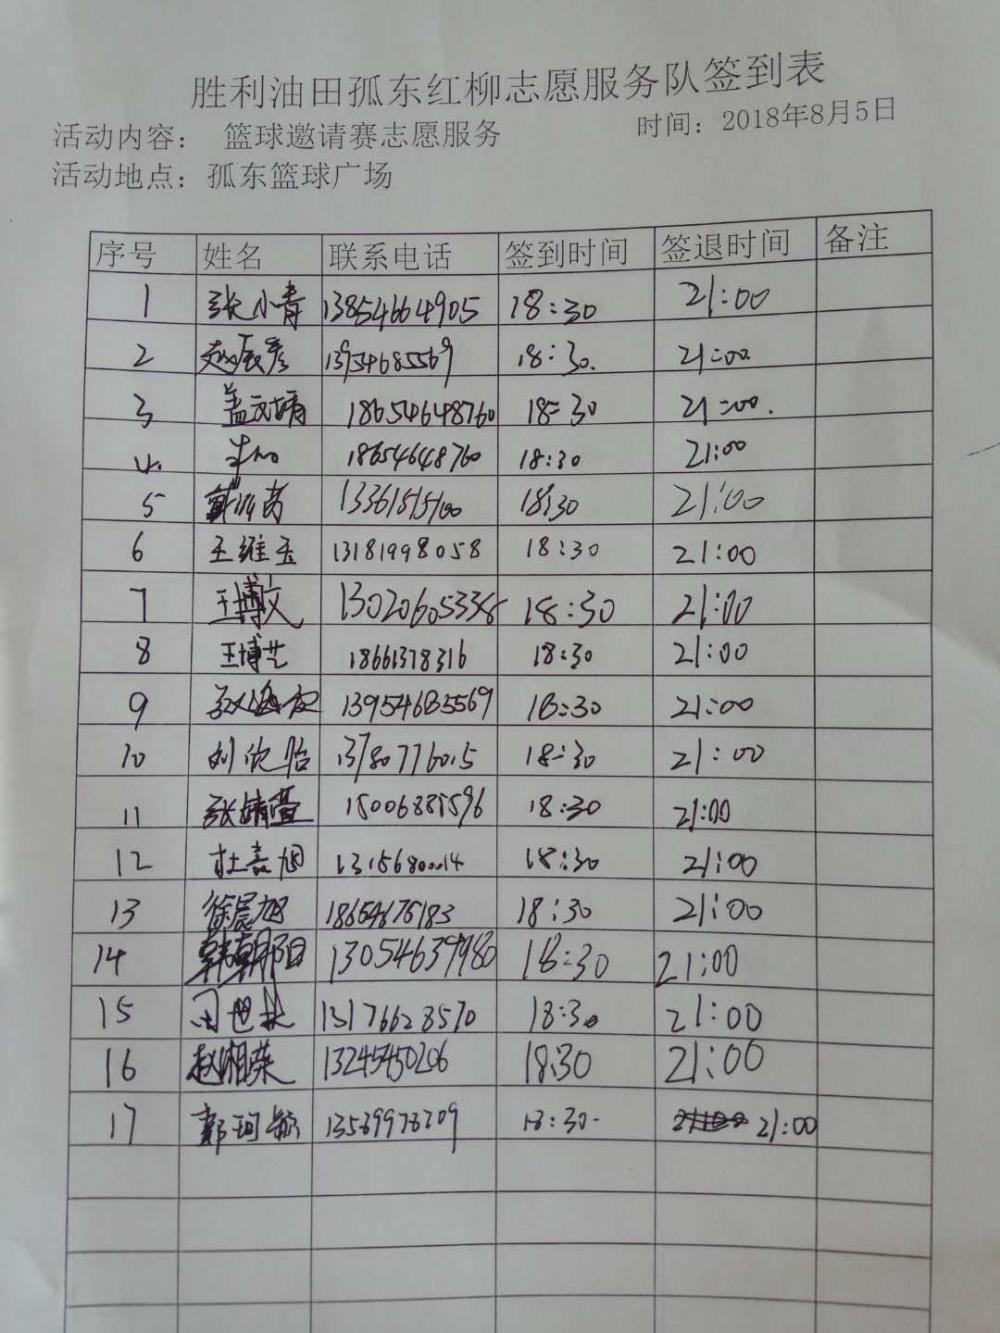 胜利油田孤东红柳志愿服务队签到表
活动内容： 篮球邀请赛志愿服务 时间：2018年8月5日
活动地点：孤东篮球广场
序号 姓名 联系电话 签到时间 签退时间 备注
1 张小青 13854664905 18:30 21:00
2 彦 13954685569 18:30. 21:00.
3 盖文婧 18654648760 18:30 21:00.
4. 18654648760 18:30 21:00
5 18:30 21:00
6 王维玉 13181998058 18:30 21:00
7 王博文 13020605338 18:30 21:00
8 王博艺 18661378316 18:30 21:00
9 13954685569 18:30 21:00
10 刘欣怡 13780776015 18:30 21:00
11 张婧萱 15006885596 18:30 21:00
12 杜嘉旭 18:30 21:00
13 徐晨旭 18654676183 18:30 21:00
14 韩朝阳 13054639980 18:30 21:00
15 13176628570 18:30 21:00
16 赵湘荣 13245450206 18:30 21:00
17 郭珂 18:30 21:00